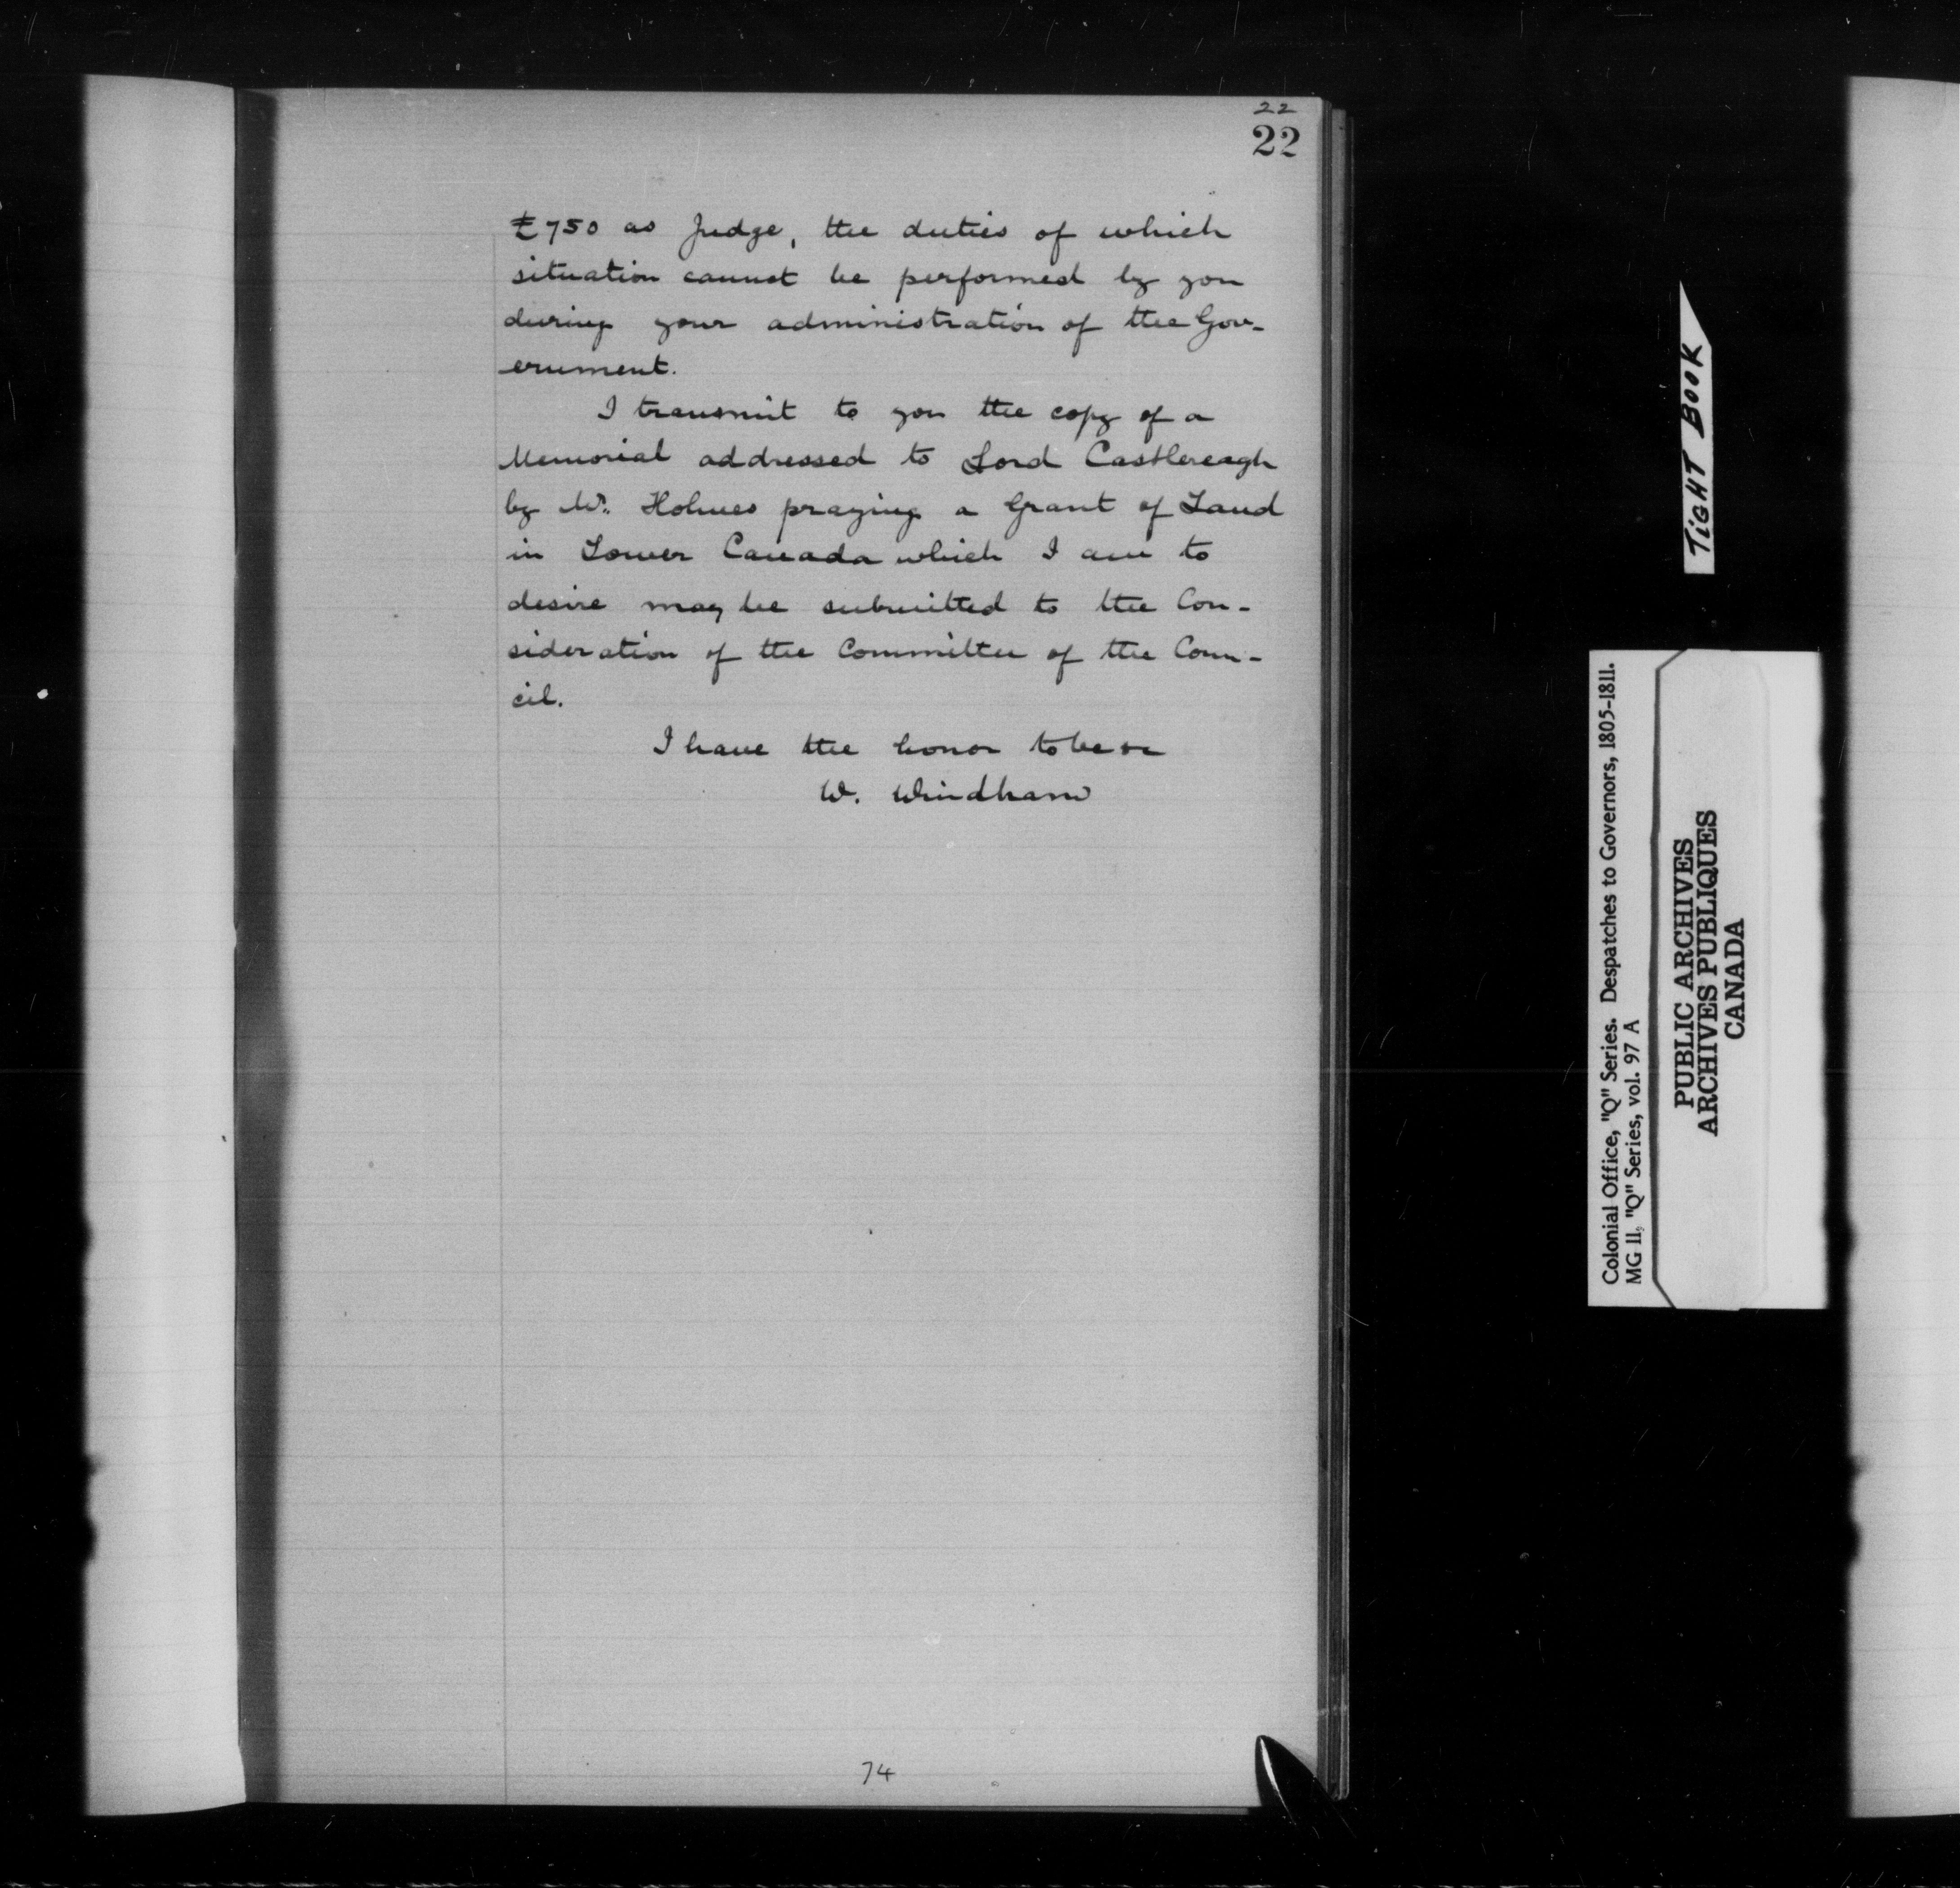 22
22
£750 as Judge, the duties of which
situation cannot be performed by you
during your administration of the Gov-
ernment.
I transmit to you the copy of a
Memorial addressed to Lord Castlereagh
by Mr. Holmes praying a Grant of Land
in Lower Canada which I am to
desire may be submitted to the Con-
sideration of the Committee of the Coun-
cil.
I have the honor to be &c
W. Windham
74
TIGHT BOOK
Colonial Office, "Q" Series. Despatches to Governors, 1805-1811.
MG 11, "Q" Series, vol. 97 A
PUBLIC ARCHIVES
ARCHIVES PUBLIQUES
CANADA